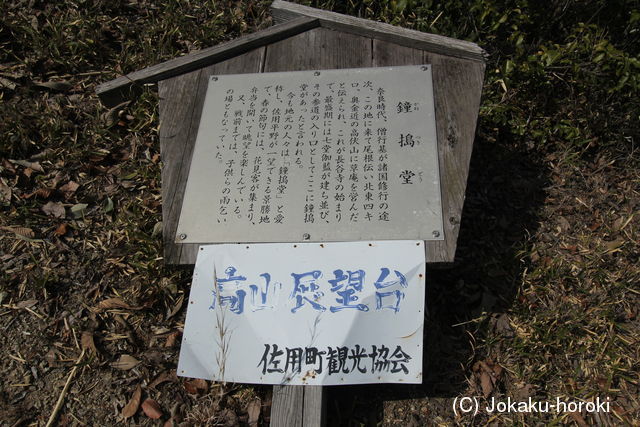 鐘搗堂
かね つき どう
奈良時代、僧行基が諸国修行の途
次、この地に来て尾根伝い北東四キ
口、奥金近の高伏山に草庵を営んだ
と伝えられ、これが長谷寺の始まり
で、最盛期には七堂伽藍が建ち並び、
その参道の入り口としてここに鐘搗
堂があったと言われる。
今も地元の人々は「鐘搗堂」と愛
称し、佐用平野が一望できる景勝地
で、春の節句には、花見客が集まり、
弁当を開いて眺望を楽しんでいる。
又、戦前までは、子供らの雨乞い
の場ともなっていた。
高山展望台
佐用町観光協会
(C) Jokaku-horoki